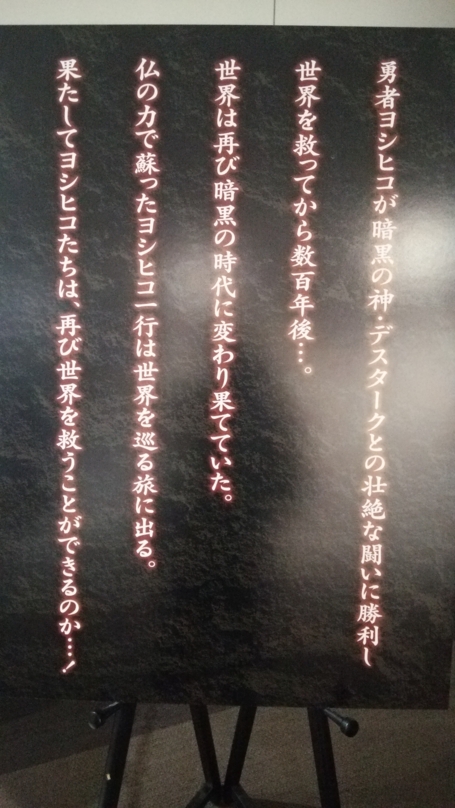 勇者ヨシヒコが暗黒の神・デスタークとの壮絶な闘いに勝利し
世界を救ってから数百年後…。
世界は再び暗黒の時代に変わり果てていた。
仏の力で蘇ったヨシヒコ一行は世界を巡る旅に出る。
果たしてヨシヒコたちは、再び世界を救うことができるのか…!